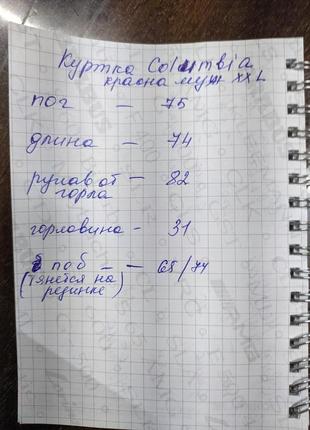 Куртка Columbia
красна муж XXL
пог — 75
длина — 74
рукав от — 82
горла
горловина - 31
поб — — 65/74
(тянется на
резинке)